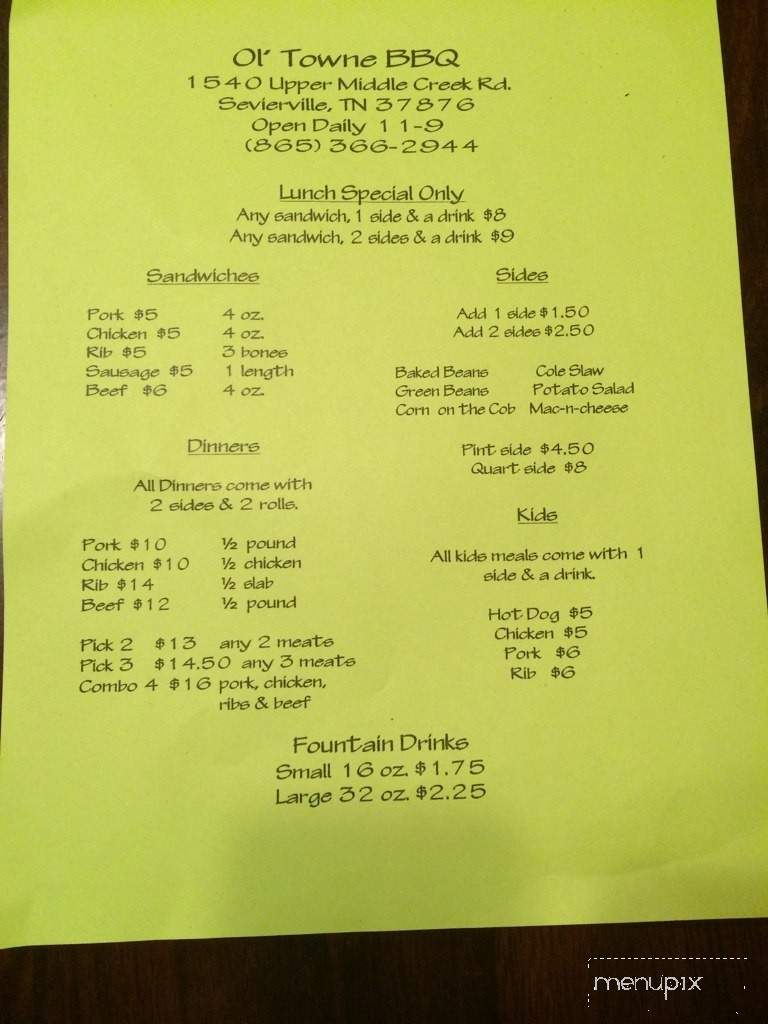 Ol' Towne BBQ
1540 Upper Middle Creek Rd.
Sevierville, TN 37876
Open Daily 11-9
(865) 366-2944
Lunch Special Only
Any sandwich, 1 side & a drink $8
Any sandwich, 2 sides & a drink $9
Sandwiches
Pork $5 4 oz.
Chicken $5 4 oz.
Rib $5 3 bones
Sausage $5 1 length
Beef $6 4 oz.
Dinners
All Dinners come with
2 sides & 2 rolls.
Pork $10 ½ pound
Chicken $10 ½ chicken
Rib $14 ½ slab
Beef $12 ½ pound
Pick 2 $13 any 2 meats
Pick 3 $14.50 any 3 meats
Combo 4 $16 pork, chicken,
ribs & beef
Sides
Add 1 side $1.50
Add 2 sides $2.50
Baked Beans Cole Slaw
Green Beans Potato Salad
Corn on the Cob Mac-n-cheese
Pint side $4.50
Quart side $8
Kids
All kids meals come with 1
side & a drink.
Hot Dog $5
Chicken $5
Pork $6
Rib $6
Fountain Drinks
Small 16 oz. $1.75
Large 32 oz. $2.25
menupix